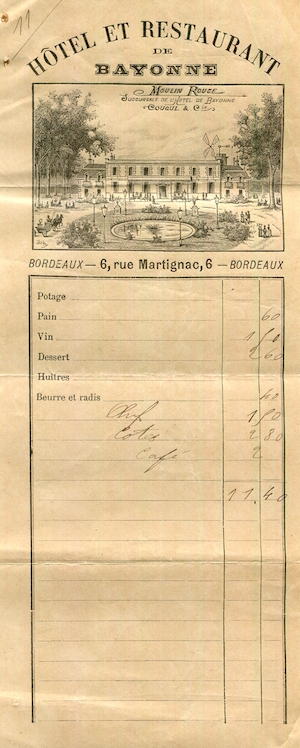 11
HÔTEL ET RESTAURANT
DE
BAYONNE
MOULIN ROUGE
SUCCURSALE DE L'HÔTEL DE BAYONNE
COUGUL & Cie
BORDEAUX — 6, rue Martignac, 6 — BORDEAUX
Potage
Pain 60
Vin 1 50
Dessert 2 60
Huîtres
Beurre et radis 40
1 50
Cotes 2 80
Café 2
11.40